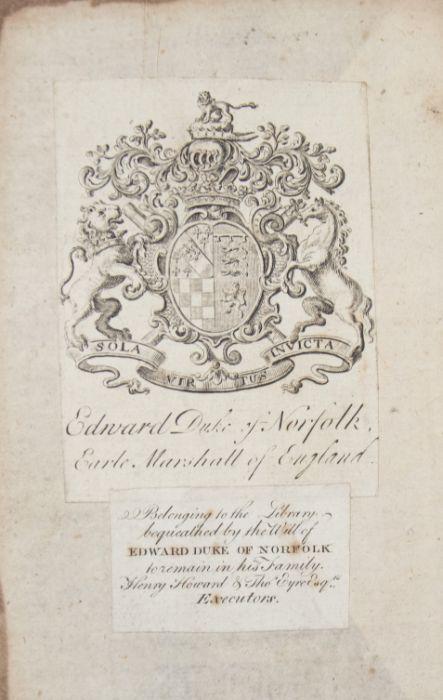 SOLA VIRTUS INVICTA
Edward Duke of Norfolk,
Earle Marshall of England.
Belonging to the Library
bequeathed by the Will of
EDWARD DUKE OF NORFOLK
to remain in his Family.
Henry Howard & Tho.s Eyre Esq.rs
Executors.